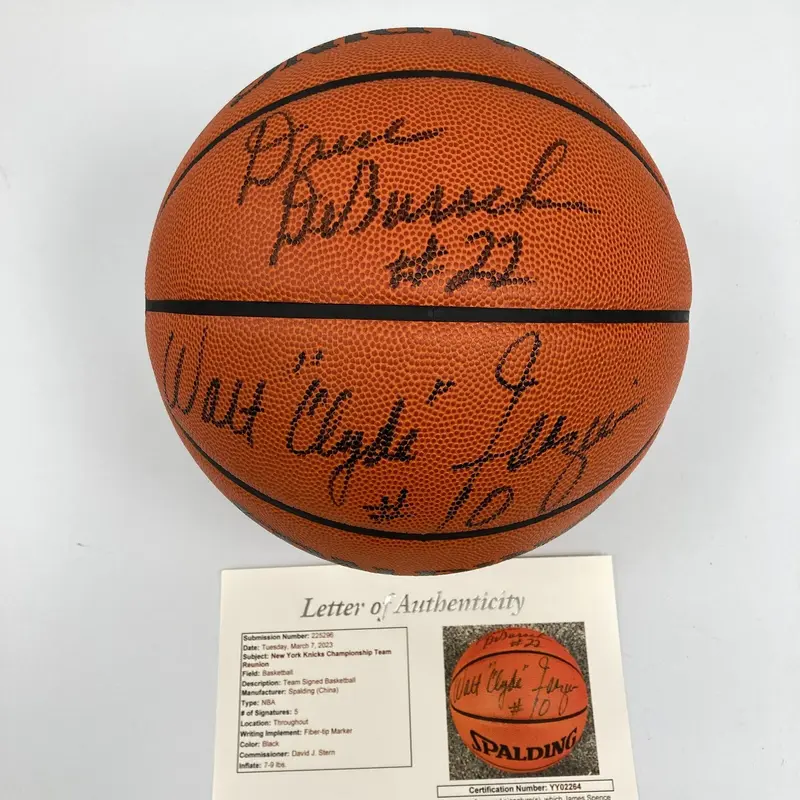 Dave
DeBussch
#22
Walt "Clyde" Frazier
#10
Letter of Authenticity
Submission Number: 225296
Date: Tuesday, March 7, 2023
Subject: New York Knicks Championship Team
Reunion
Field: Basketball
Description: Team Signed Basketball
Manufacturer: Spalding (China)
Type: NBA
# of Signatures: 5
Location: Throughout
Writing Implement: Fiber-tip Marker
Color: Black
Commissioner: David J. Stern
Inflate: 7-9 lbs.
DeBussch
#22
Walt "Clyde" Frazier
#10
SPALDING
Certification Number: YY02264
which James Spence